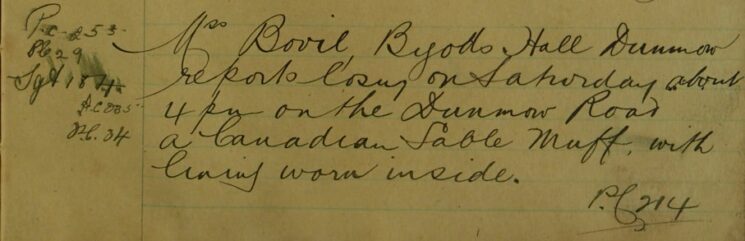 P.C. 253
P.C 29
Sgt 18
P.C. 34
Mrs Bovil, Byods. Hall Dunmow
reports losing on Saturday about
4 pm on the Dunmow Road
a Canadian Sable Muff. with
lining worn inside.
P.C 214